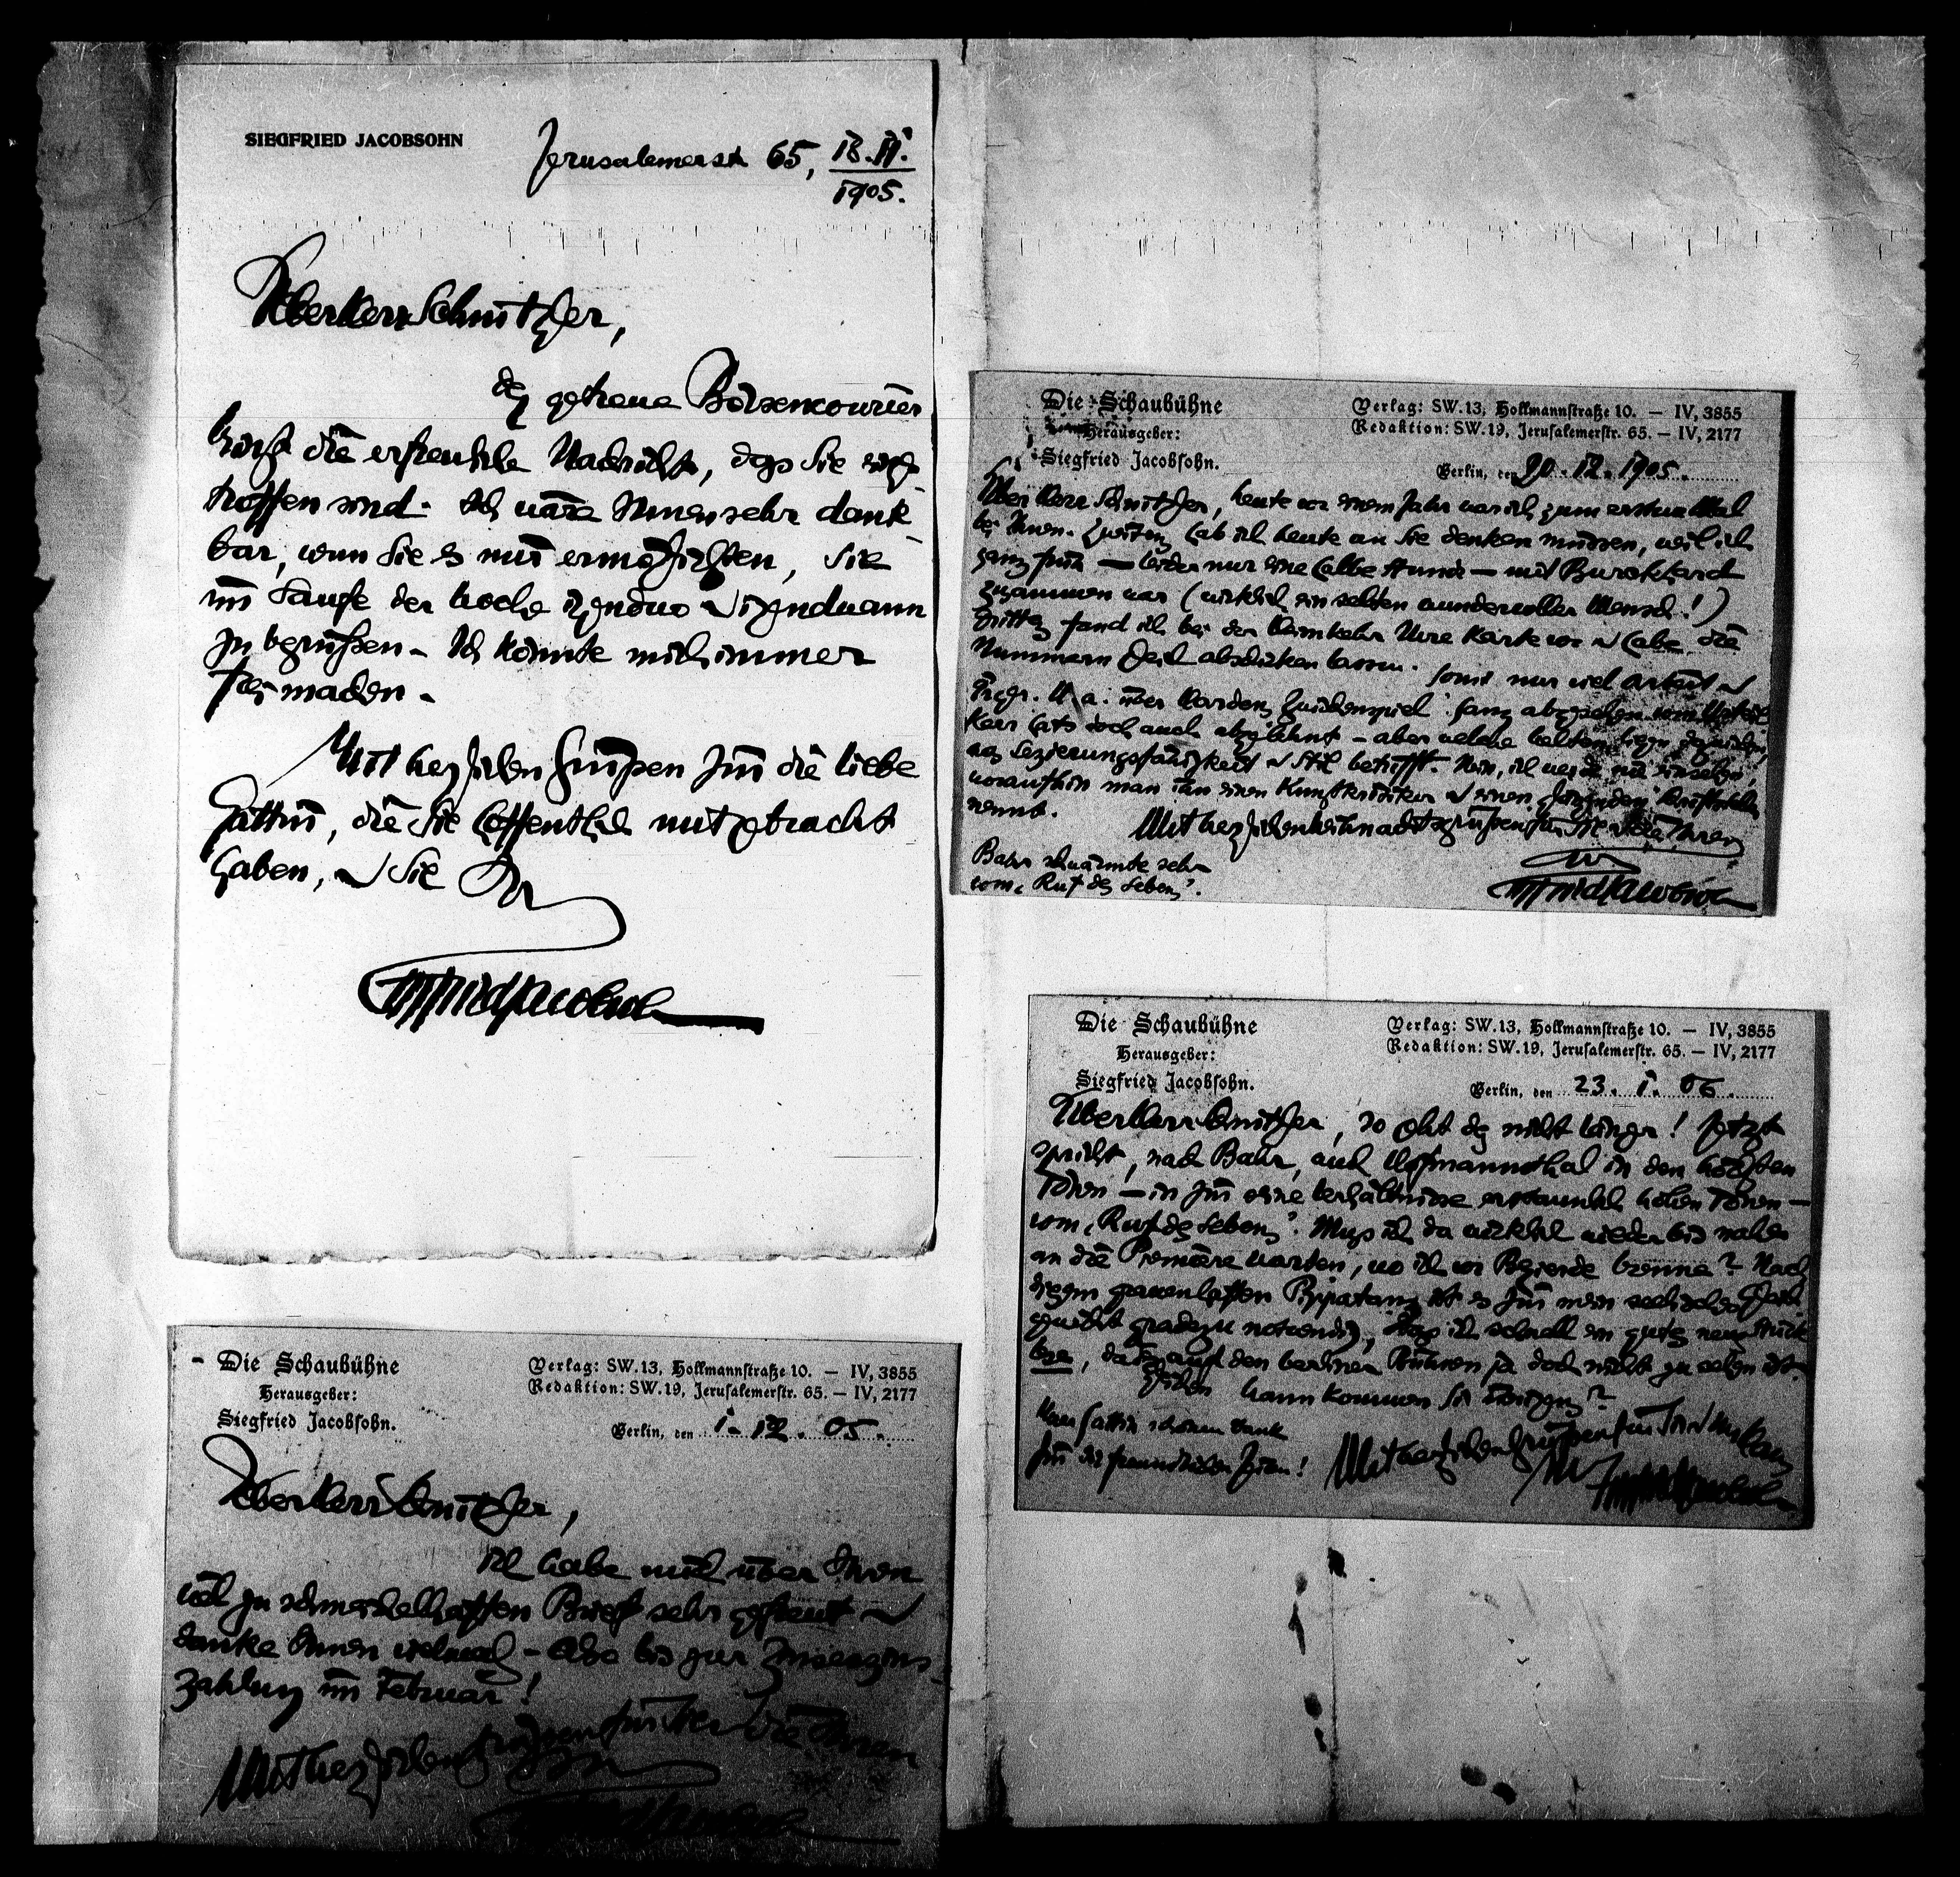 SIEGFRIED JACOBSOHN
Jerusalemerstr 65, 18.II.
1905.
Lieber Herr Schnitzler,
der getreue Börsencourier
bringt die erfreuliche Nachricht, dass Sie eingetroffen
sind. Ich wäre Ihnen sehr dankbar,
wenn Sie es mir ermöglichten, Sie
im Laufe der Woche irgendwo u irgendwann
zu begrüßen. Ich könnte mich immer
frei machen.
Mit herzlichen Grüßen für die liebe
Gattin, die Sie hoffentlich mitgebracht
haben, u Sie Ihr
Siegfried Jacobsohn
Die Schaubühne
Herausgeber:
Siegfried Jacobsohn.
Verlag: SW. 13, Hollmannstraße 10. — IV, 3855
Redaktion: SW. 19, Jerusalemerstr. 65. — IV, 2177
Berlin, den 1. 12. 05.
Lieber Herr Schnitzler,
ich habe mich über Ihren
viel zu schmeichelhaften Brief sehr gefreut u
danke Ihnen vielmals. Also bis zur
zahlung im Februar!
Mit herzlichen Grüßen für Sie u die Ihren
Ihr
Siegfried Jacobsohn
Die Schaubühne
Herausgeber:
Siegfried Jacobsohn.
Verlag: SW. 13, Hollmannstraße 10. — IV, 3855
Redaktion: SW. 19, Jerusalemerstr. 65. — IV, 2177
Berlin, den 20. 12. 1905.
Lieber Herr Schnitzler, heute vor einem Jahr war ich zum ersten Mal
bei Ihnen. Zweitens hab ich heute an Sie denken müssen, weil ich
ganz früh — leider nur eine halbe Stunde — mit Burckhard
zusammen war (wirklich ein selten wundervoller Mensch!)
Drittens fand ich bei der Heimkehr Ihre Karte vor u habe die
Nummern gleich abschicken lassen. Sonst nur viel Arbeit u
Ärger. U. a. über Hardens Zwischenspiel. Ganz abgesehen vom Urteil
Kerr hats doch auch abgelehnt — aber welche
was Sezierungsfähigkeit u Stil betrifft. Nein, ich werde nie einsehen,
woraufhin man ihn einen Kunstkritiker u einen
nennt.
Mit herzlichen Weihnachtsgrüßen für Sie u die Ihren
Ihr
Siegfried Jacobsohn
Bahr schwärmte sehr
vom „Ruf des Lebens".
Die Schaubühne
Herausgeber:
Siegfried Jacobsohn.
Verlag: SW. 13, Hollmannstraße 10. — IV, 3855
Redaktion: SW. 19, Jerusalemerstr. 65. — IV, 2177
Berlin, den 23. I. 06.
Lieber Herr Schnitzler, so geht das nicht länger! Jetzt
spricht, nach Bahr, auch Hofmannsthal in den höchsten
Tönen — in für seine Verhältnisse erstaunlich hohen Tönen —
vom „Ruf des Lebens". Muss ich da wirklich wieder bis nahe
an die Première warten, wo ich vor Begierde brenne? Nach
diesem grauenhaften Pippatanz ist es für mein seelisches Gleichgewicht
gradezu notwendig, dass ich schnell ein gutes neues Stück
lese, da es auf den berliner Bühnen ja doch nicht zu sehen ist.
Wann kommen Sie übrigens?
Ihrer Gattin schönen Dank
für die freundlichen Zeilen!
Mit herzlichen Grüßen für Sie u Ihr Haus
Ihr Siegfried Jacobsohn